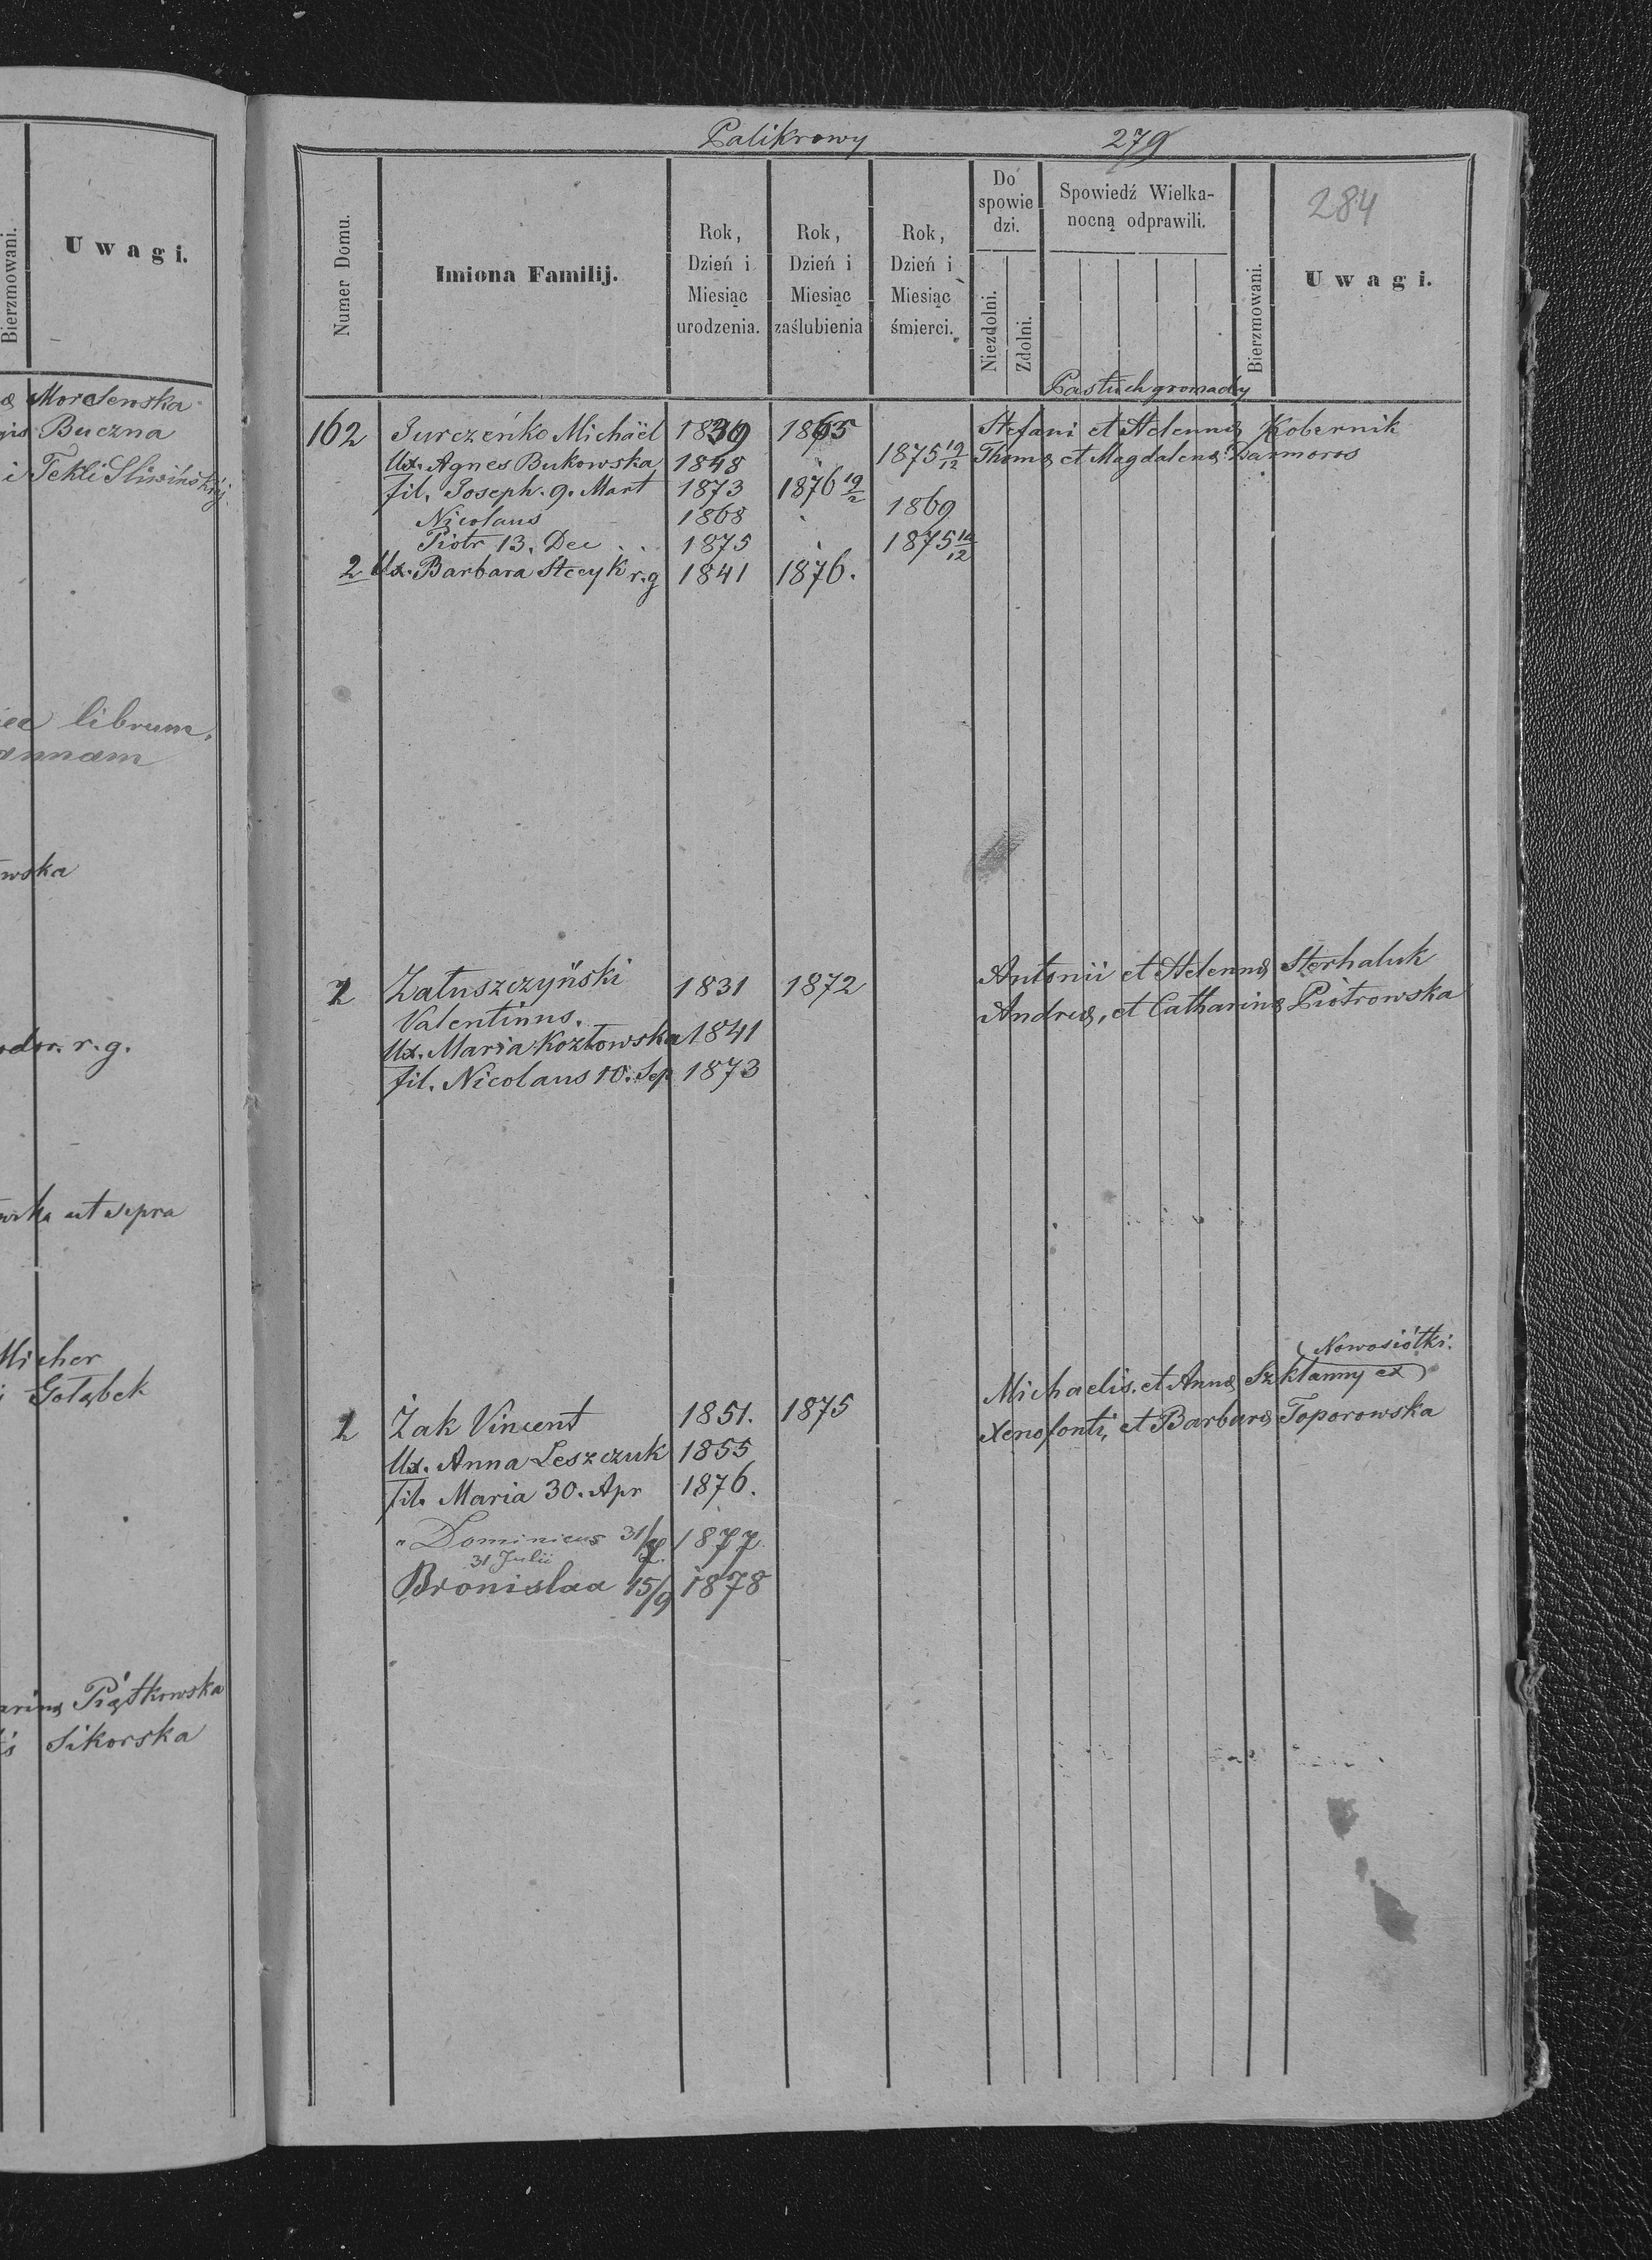 Bierzmowani.
Uwagi.
Buczna
i Tekli Sliwińskiej
librum.
annam
wska
r. g.
ut supra
Micher
Gołąbek
Piątkowska
Sikorska
Palikrowy 279
284
Numer Domu.
Imiona Familij.
Rok, Dzień i Miesiąc urodzenia.
Rok, Dzień i Miesiąc zaślubienia
Rok, Dzień i Miesiąc śmierci.
Do spowie dzi.
Niezdolni.
Zdolni.
Spowiedź Wielka-
nocną odprawili.
Bierzmowani.
Uwagi.
Pastuch gromady
162 Jurczeńko Michaël 1839 1865 Stefani et Helennæ Kobernik
Ux. Agnes Bukowska 1848 1875 19/12 Thomæ et Magdalenæ Darmoros
fil. Joseph. 9. Mart 1873 1876 19/2
Nicolaus 1868 1869
Piotr 13. Dec 1875 1875 14/12
2 Ux. Barbara Stecyk r. g 1841 1876.
2 Załuszczyński 1831 1872 Antonii et Helennæ Sterhaluk
Valentinus. Andreæ, et Catharinæ Piotrowska
Ux. Maria Kozłowska 1841
fil. Nicolaus 10. Sep 1873
(Nowosiółki.
Michaelis. et Annæ Szklanny ex)
2 Żak Vincent 1851. 1875 Xenofonti, et Barbaræ Toporowska
Ux. Anna Leszczuk 1855
fil. Maria 30. Apr 1876.
" Dominicus 31/7. 1877.
31 Julii
Bronislaa 15/9 1878